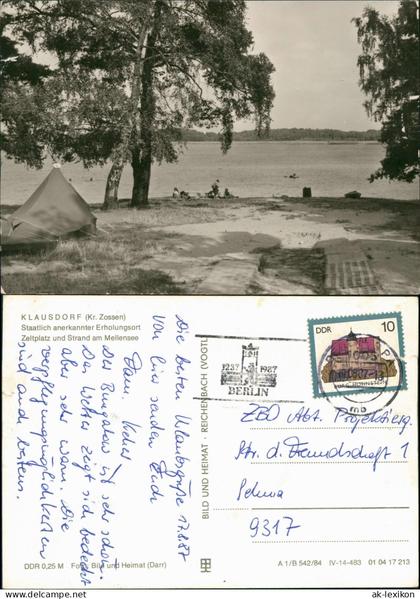 KLAUSDORF (Kr. Zossen)
Staatlich anerkannter Erholungsort
Zeltplatz und Strand am Mellensee
Die besten Urlaubsgrüße 17.8.87
von hier senden Euch
Fam.
Der Bungalow ist sehr schön.
Das Wetter zeigt sich bedeckt
aber sehr warm. Die
Verpflegungsmöglichkeiten
sind auch bestens.
DDR 0,25 M Foto: Bild und Heimat (Darr)
BILD UND HEIMAT · REICHENBACH (VOGTL
1237 1987
BERLIN
DDR 10
ZBO Abt. Projektierg.
Str. d. Freundschaft 1
Sehma
9317
A 1/B 542/84 IV-14-483 01 04 17 213
© ak-lexikon
ak-lexikon.com